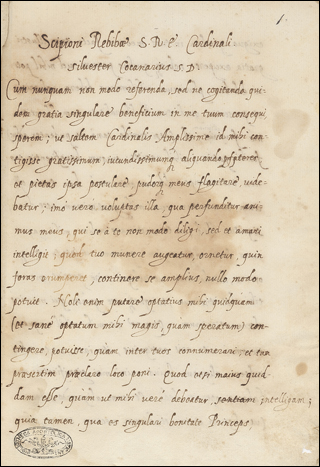 1.
Scipioni Rebibæ S. R. E. Cardinali
Silvester S. D.
Cum nunquam non modo referenda, sed ne cogitando qui-
dem gratia singulare beneficium in me tuum consequi
sperem; ut saltem Cardinalis Amplissime id mihi con-
tigisse gratissimum, iucundissimumq aliquando
et pietas ipsa postulare pudorq meus flagitare vide-
batur; imò verò voluptas illa qua perfunditur ani-
mus meus, qui se à te non modo diligi, sed et amari
intelligit; quod tuo munere augeatur, ornetur, quin
foras erumperet, continere se amplius, nullo modo
potuit. Noli enim putare optatius mihi quidquam
(et sanè optatum mihi magis, quam speratum) con-
tingere, potuisse, quam inter tuos connumerari, et tam
præsertim præclaro loco poni. Quod etsi maius quid-
dam esse, quam ut mihi verè debeatur, sentiam intelligam;
quia tamen, qua es singulari bonitate Princeps